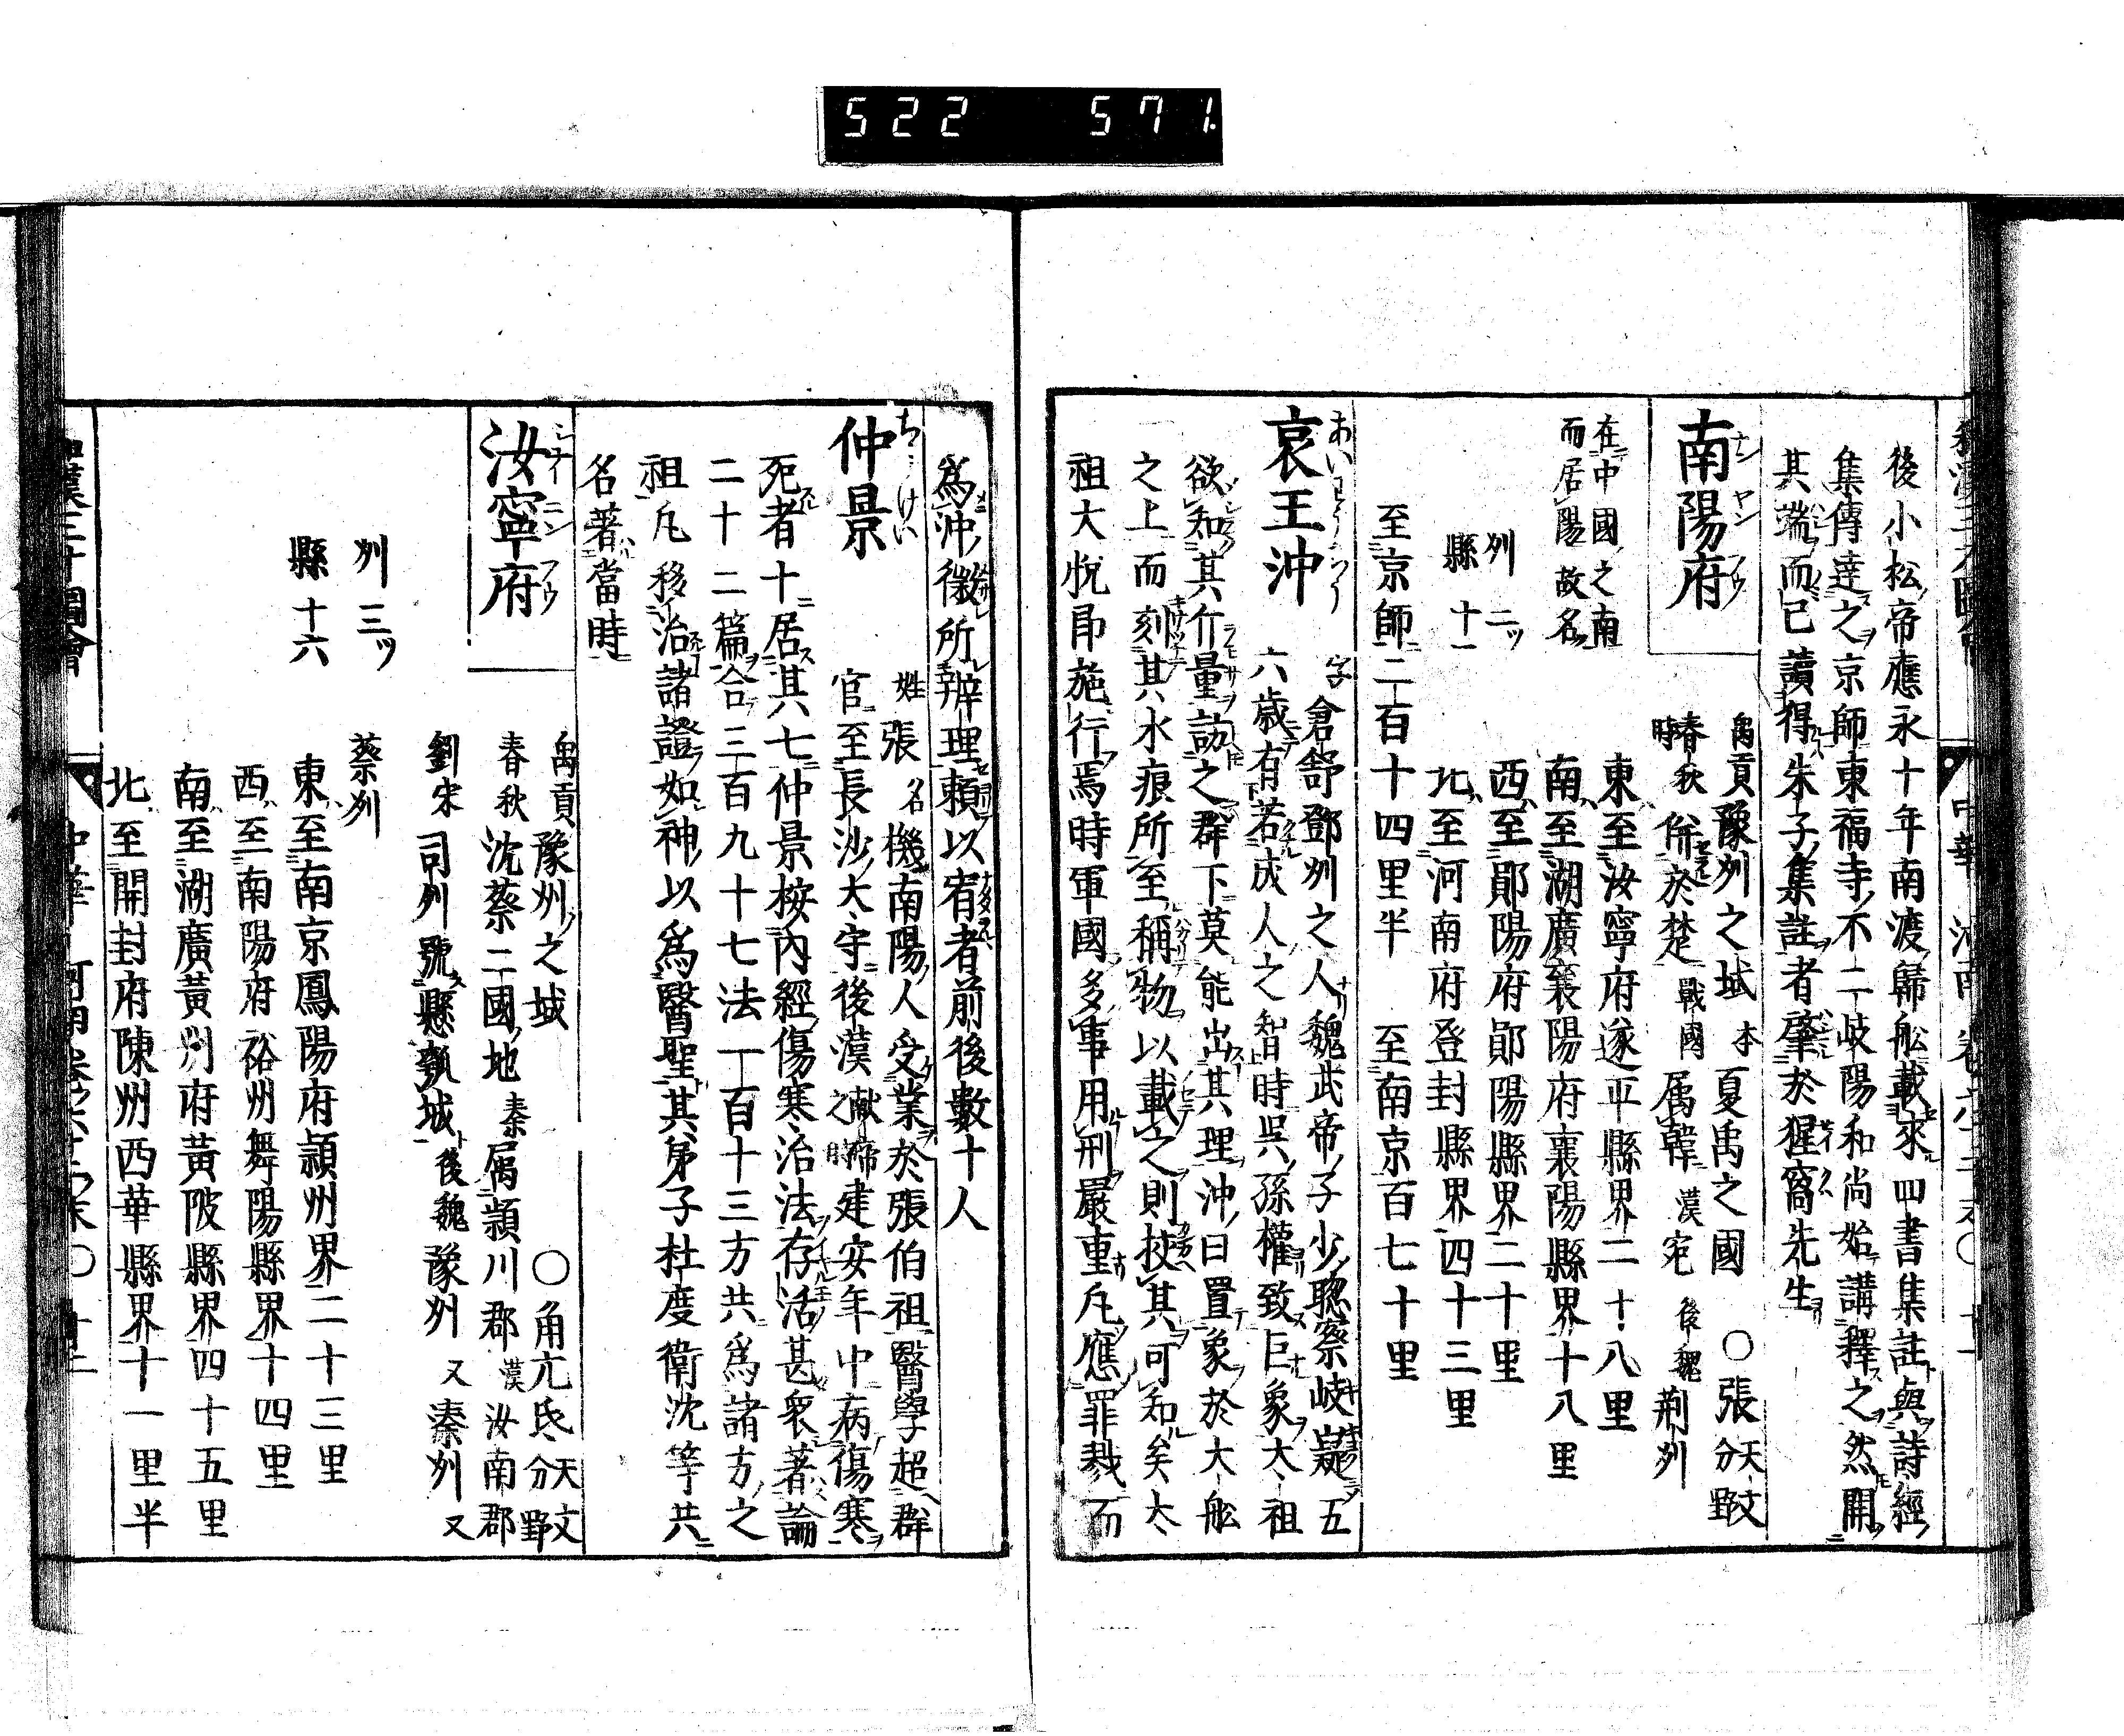 522 571
後小松帝應永十年南渡歸舩載來四書集註與詩經
集傳達之京師東福寺不二岐陽和尚始講釋之然開
其端而已讀得朱子集註者肇於猩窩先生
南陽府
ナンヤンフウ
禹貢豫州之域 本夏禹之國 〇張 天文分野
春秋時併於楚 戰國属韓 漢宛 後魏荆州
在中國之南
而居陽故名
東至汝寧府遂平縣界二十八里
南至湖廣襄陽府襄陽縣界十八里
州二ツ 西至鄖陽府鄖陽縣界二十里
縣十一 北至河南府登封縣界四十三里
至京師二百十四里半 至南京百七十里
哀王沖
字倉舒鄧州之人魏武帝子少聰察岐嶷五
六歳有若成人之智時呉孫權致巨象太祖
欲知其斤量訪之群下莫能出其理沖曰置象於大舩
之上而刻其水痕所至稱物以載之則挍其可知矣太
祖大悅即施行焉時軍國多事用刑嚴重凡應罪戮而
爲沖微所辨理賴以宥者前後數十人
仲景
姓張名機南陽人受業於張伯祖醫學超群
官至長沙大守後漢献帝之時建安年中病傷寒
死者十居其七仲景按內經傷寒治法存活甚衆著論
二十二篇合三百九十七法一百十三方共爲諸方之
祖凡移治諸證如神以爲醫聖其弟子杜度衛沈等共
名著當時
汝寧府
禹貢豫州之域 〇角亢氐 天文分野
春秋沈蔡二國地 秦属潁川郡 漢汝南郡
劉宋司州號懸瓠城 後魏豫州 又秦州 又
蔡州
州三ツ 東至南京鳳陽府潁州界二十三里
縣十六 西至南陽府裕州舞陽縣界十四里
南至湖廣黃州府黃陂縣界四十五里
北至開封府陳州西華縣界十一里半